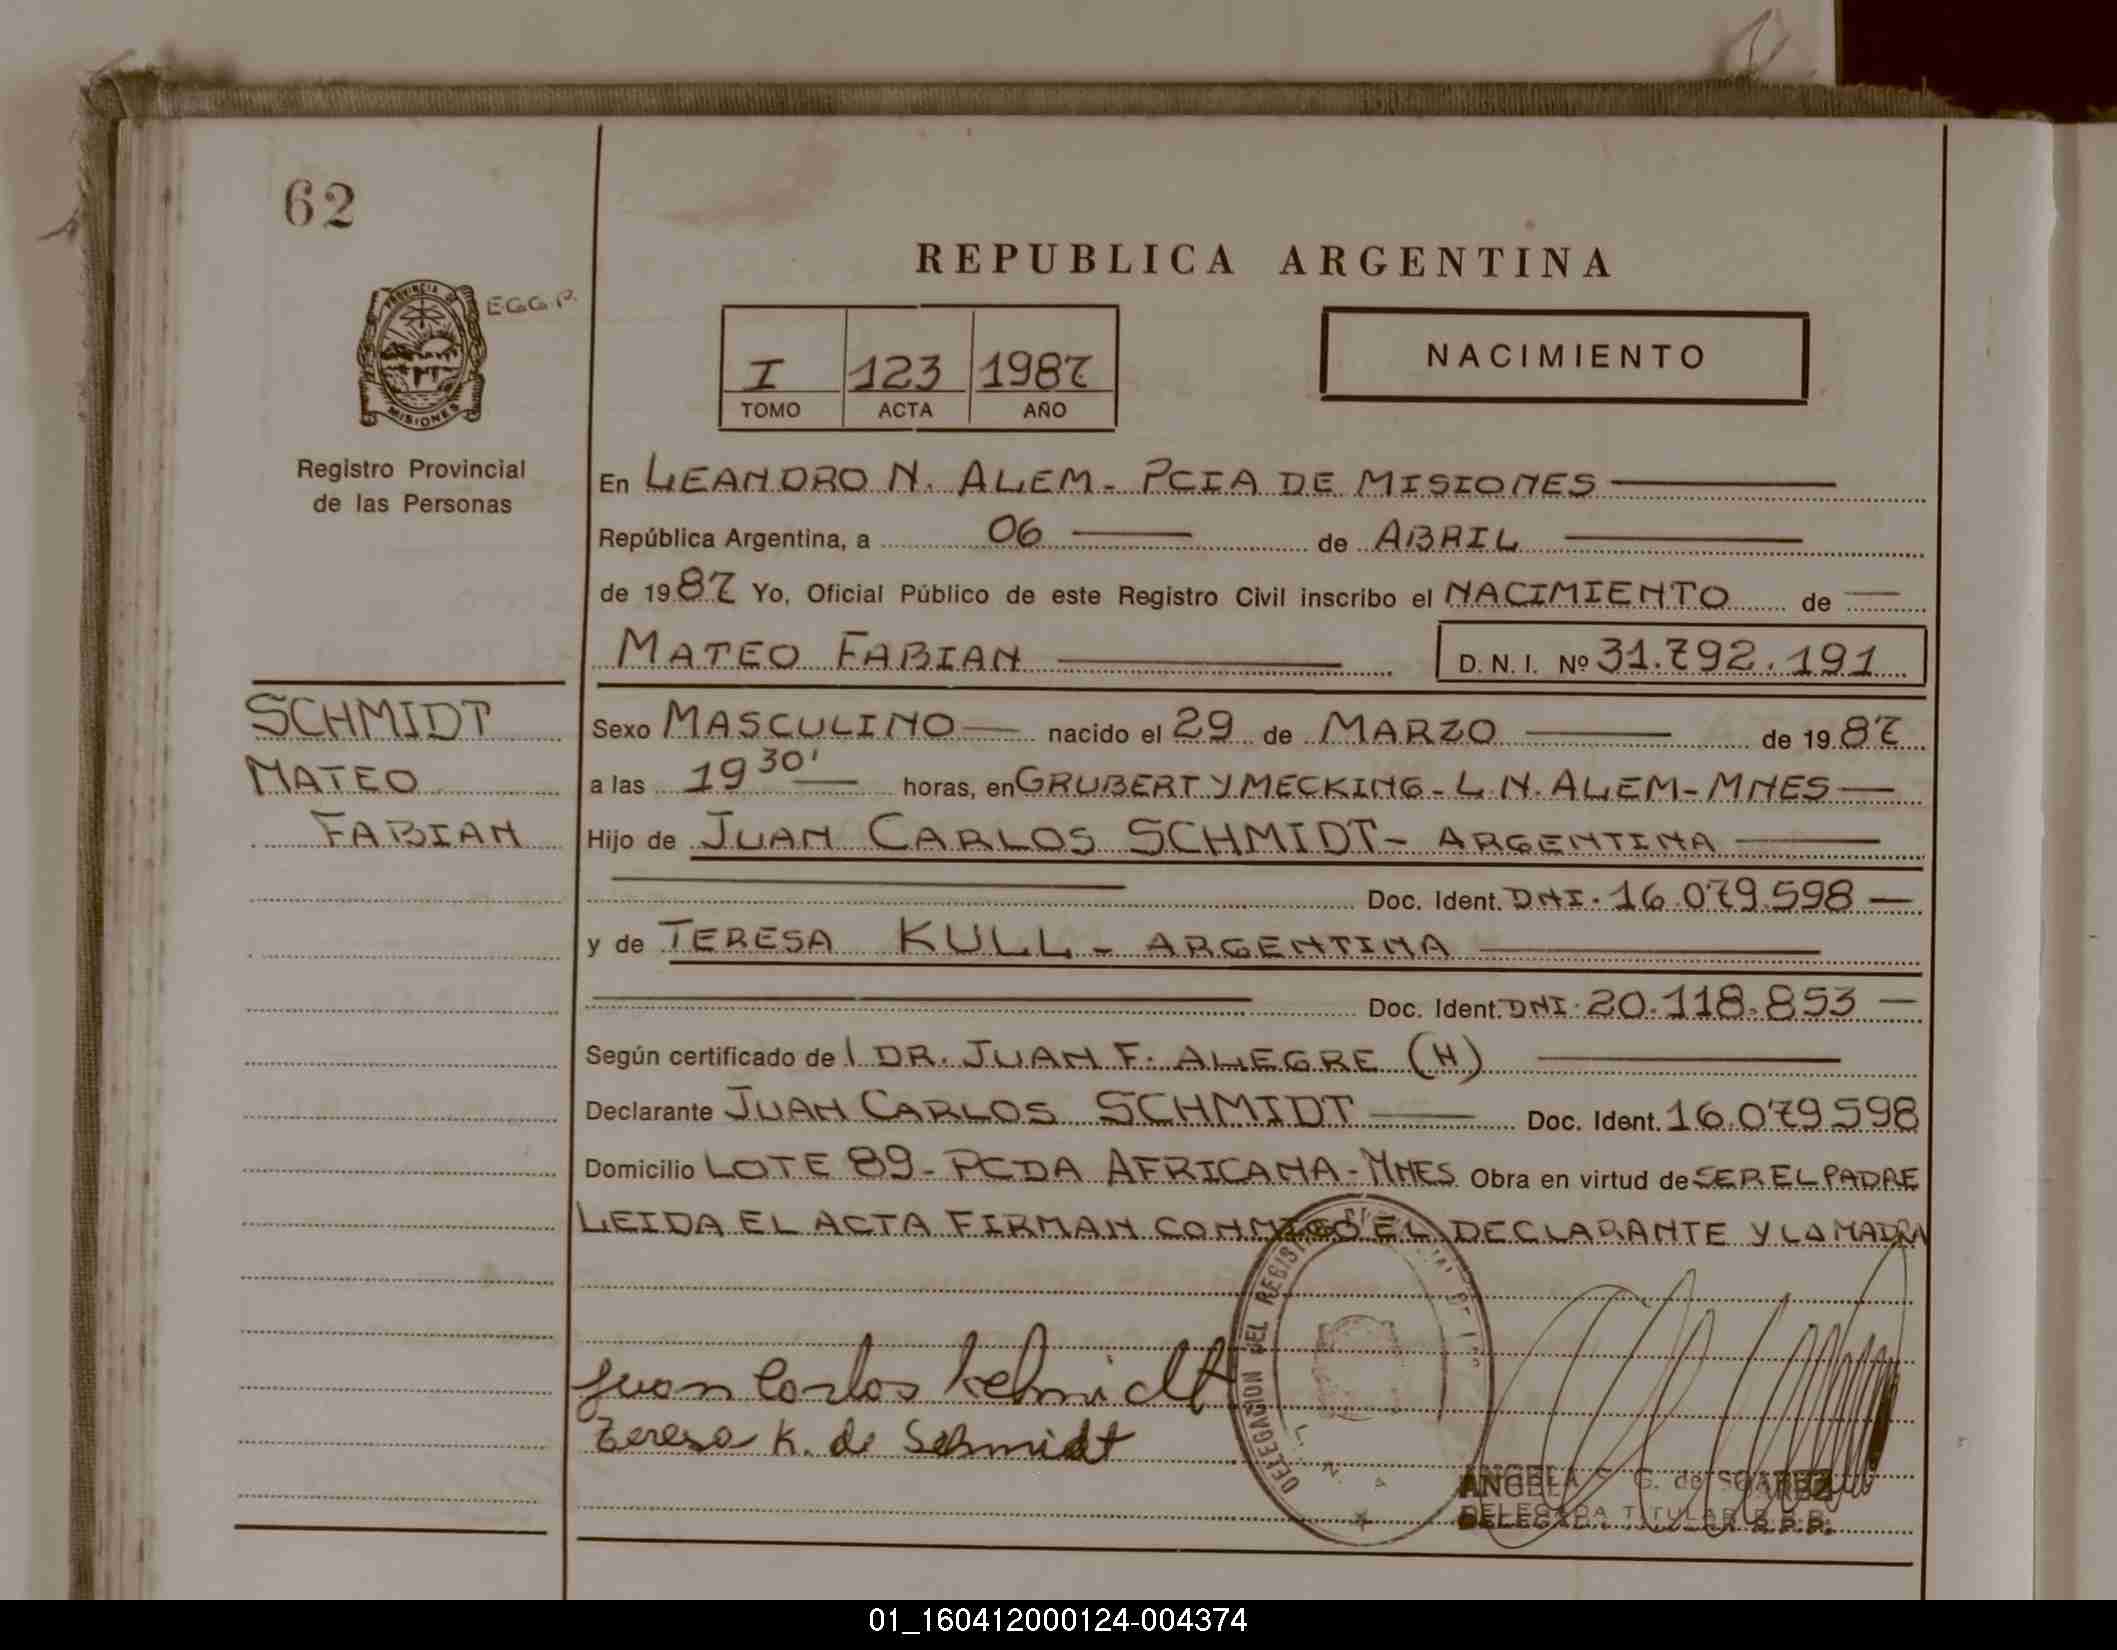 62
REPUBLICA ARGENTINA
PROVINCIA DE
MISIONES
EGGP.
I 123 1987
TOMO ACTA AÑO
NACIMIENTO
Registro Provincial
de las Personas
En LEANDRO N. ALEM - PCIA DE MISIONES
República Argentina, a 06 de ABRIL
de 1987 Yo, Oficial Público de este Registro Civil inscribo el NACIMIENTO de
MATEO FABIAN D. N. I. Nº 31.792.191
SCHMIDT
MATEO
FABIAN
Sexo MASCULINO nacido el 29 de MARZO de 1987
a las 19 30' horas, en GRUBERT Y MECKING - L.N. ALEM - MNES
Hijo de JUAN CARLOS SCHMIDT - ARGENTINA
Doc. Ident. DNI. 16.079.598
y de TERESA KULL - ARGENTINA
Doc. Ident. DNI. 20.118.853
Según certificado de l DR. JUAN F. ALEGRE (H)
Declarante JUAN CARLOS SCHMIDT Doc. Ident. 16.079598
Domicilio LOTE 89 - PCDA AFRICANA - MNES Obra en virtud de SER EL PADRE
LEIDA EL ACTA FIRMAN CONMIGO EL DECLARANTE Y LA MADRA
Juan Carlos Schmidt
Teresa K. de Schmidt
DELEGACION DEL
ANGELA S. G. de SUAREZ
DELEGADA TITULAR R.P.P.
01_160412000124-004374